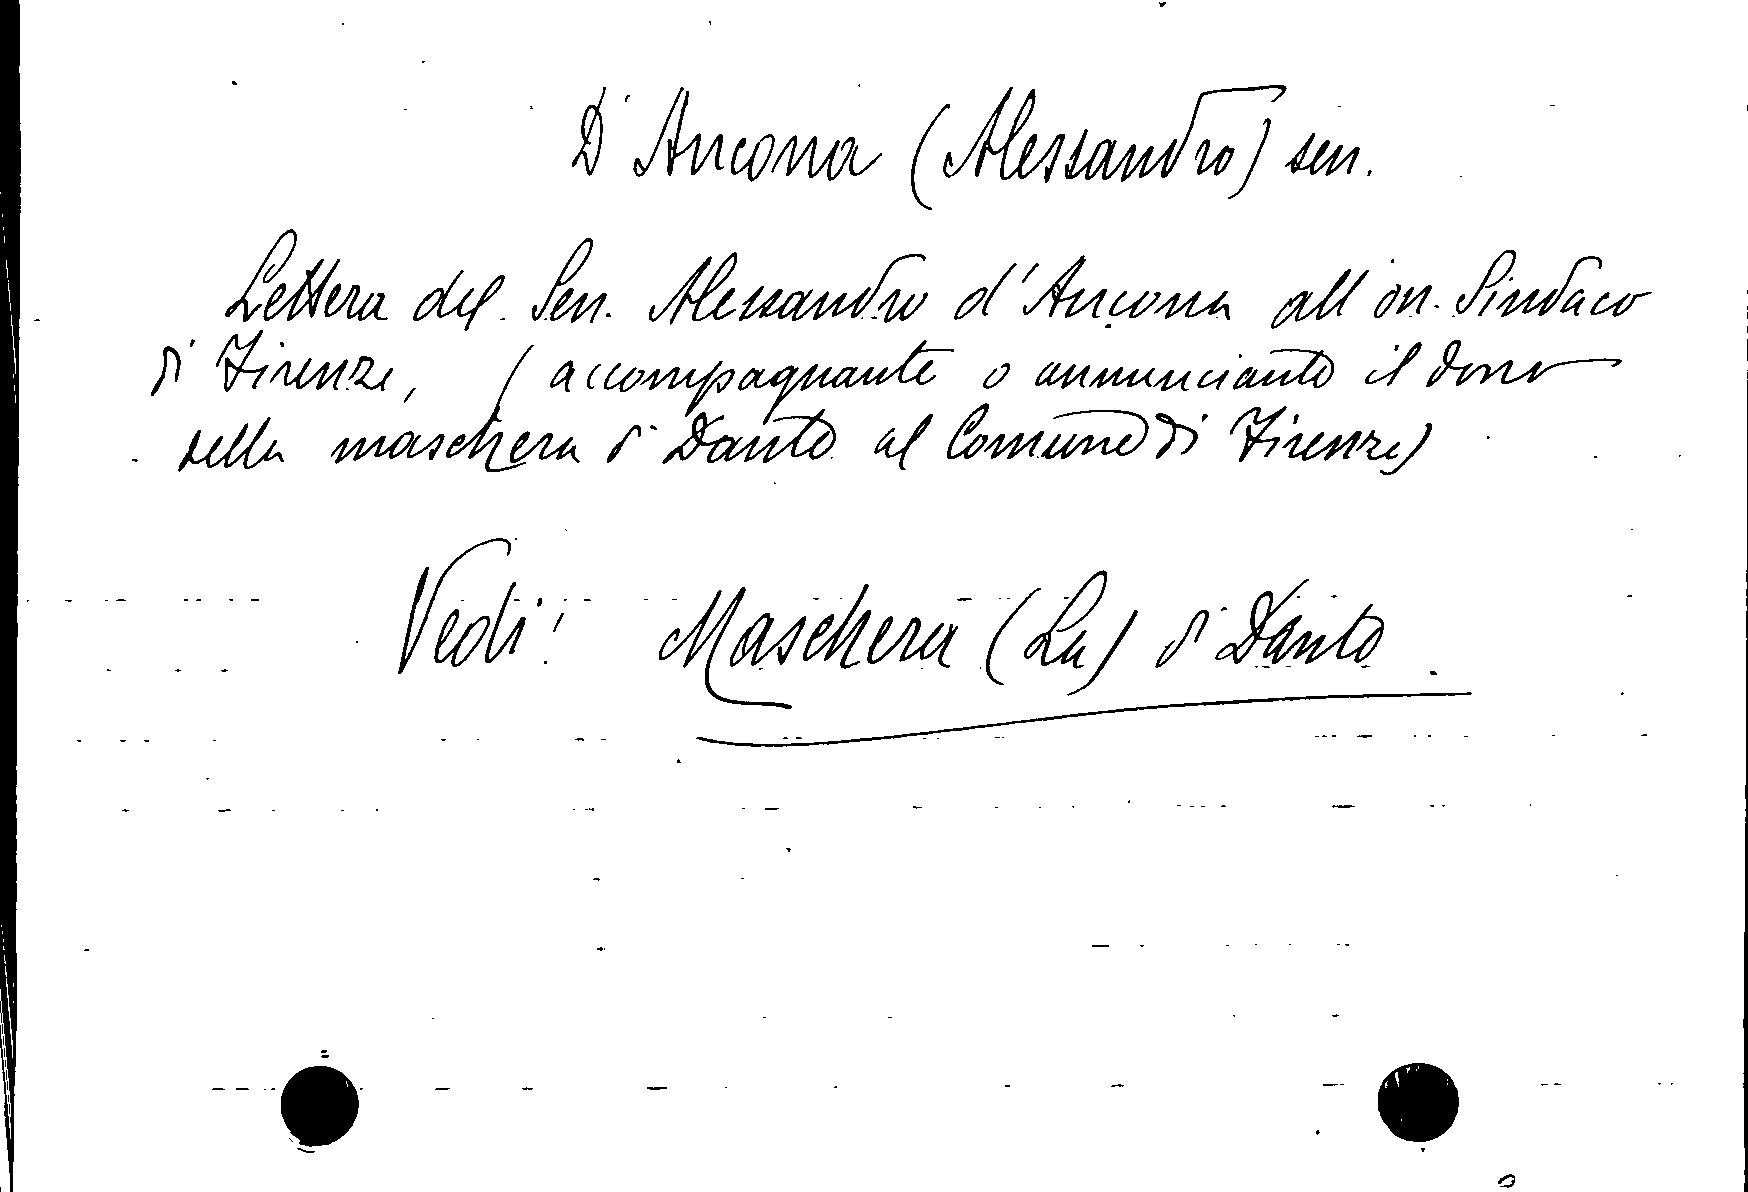 D'Ancona (Alessandro) sen.
Lettera del Sen. Alessandro d'Ancona all'on. Sindaco
di Firenze, (accompagnante o annunciante il dono
della maschera di Dante al Comune di Firenze)
Vedi: Maschera (La) di Dante